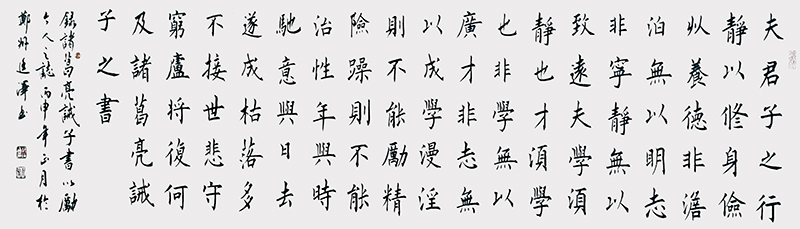 夫君子之行
靜以修身儉
以養德非澹
泊無以明志
非寧靜無以
致遠夫學須
靜也才須學
也非學無以
廣才非志無
以成學漫淫
則不能勵精
險躁則不能
治性年與時
馳意與日去
遂成枯落多
不接世悲守
窮廬將復何
及諸葛亮誡
子之書
錄諸葛亮誡子書以勵
人之丙申年正月於
鄭州書